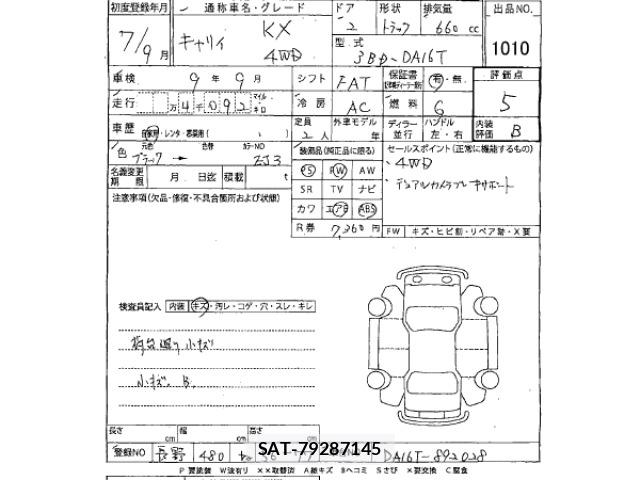 初度登録年月 通称車名・グレード ドア 形状 排気量 出品NO.
7/9月 キャリイ KX 4WD 2 トラック 660 cc 1010
型式 3BD-DA16T
車検 9年9月 シフト FAT 保証書 有・無 評価点
走行 万4千092 マイル キロ 冷房 AC 燃料 G 5
車歴 自家用・レンタ・ 定員 2人 外車モデル 年 ディラー 並行 ハンドル 左・右 内装評価 B
色 元色 ブラック → 色替 カラーNO ZJ3 装備品(純正品に限る) セールスポイント(正常に機能するもの)
・4WD
・デュアルカメラブレーキサポート
名義変更期限 月 日迄 積載 t
PS PW AW
SR TV ナビ
カワ エアB ABS
R券 7,360円
注意事項(欠品・修復・不具合箇所および状態)
FW キズ・ヒビ割・リペア跡・X要
検査員記入 内装 キズ・汚レ・コゲ・穴・スレ・キレ
荷台廻り小キズ
小キズ、B
長さ cm 幅 cm 高さ cm
登録NO 長野 480 SAT-79287145 DA16T-892028
P要塗装 W波有り XX取替済 A線キズ Bヘコミ Sさび X要交換 C腐食